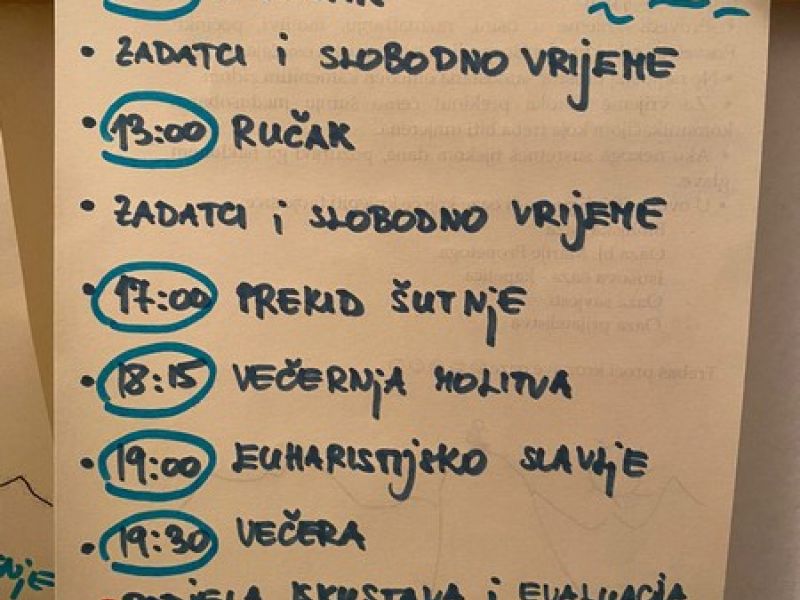 • ZADATCI i SLOBODNO VRIJEME
• 13:00 RUČAK
• ZADATCI i SLOBODNO VRIJEME
• 17:00 PREKID ŠUTNJE
• 18:15 VEČERNJA MOLITVA
• 19:00 EUHARISTIJSKO SLAVLJE
• 19:30 VEČERA
PODJELA ISKUSTAVA i EVALUACIJA